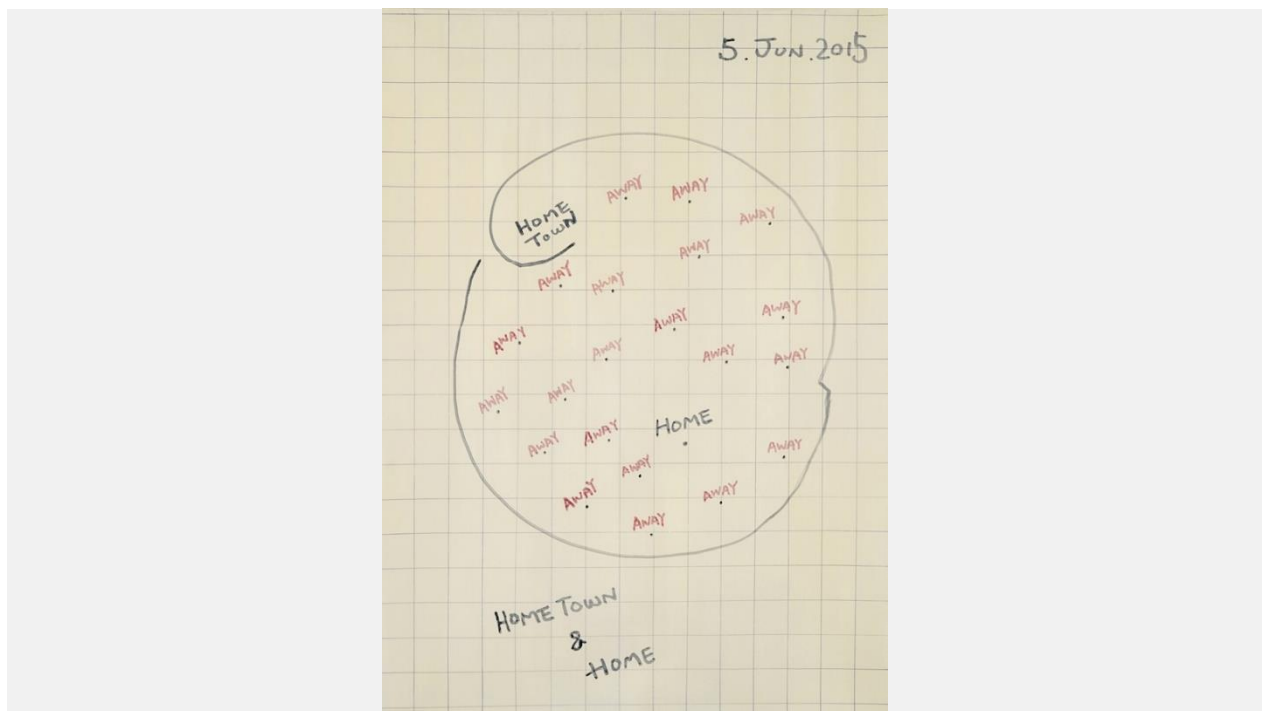 5. JUN. 2015
AWAY
AWAY
HOME
TOWN
AWAY
AWAY
AWAY
AWAY
AWAY
AWAY
AWAY
AWAY
AWAY
AWAY
AWAY
AWAY
HOME
AWAY
AWAY
AWAY
AWAY
AWAY
AWAY
AWAY
HOME TOWN
&
HOME